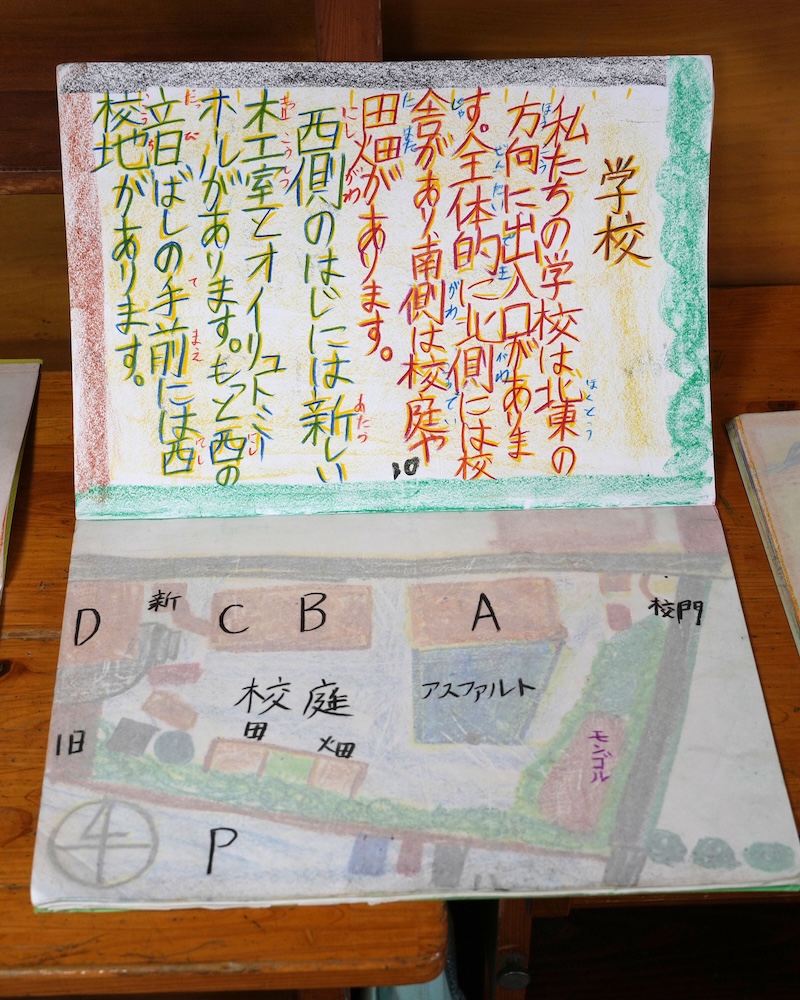 学校
私たちの学校は北東の
方向に出入口がありま
す。全体的に北側には校
舎があり、南側は校庭や
田畑があります。
西側のはじには新しい
木工室とオイリュトミー
ホールがあります。もっと西の
立日ばしの手前には西
校地があります。
10
D
新
C
B
A
校門
校庭
アスファルト
田
畑
旧
モンゴル
P